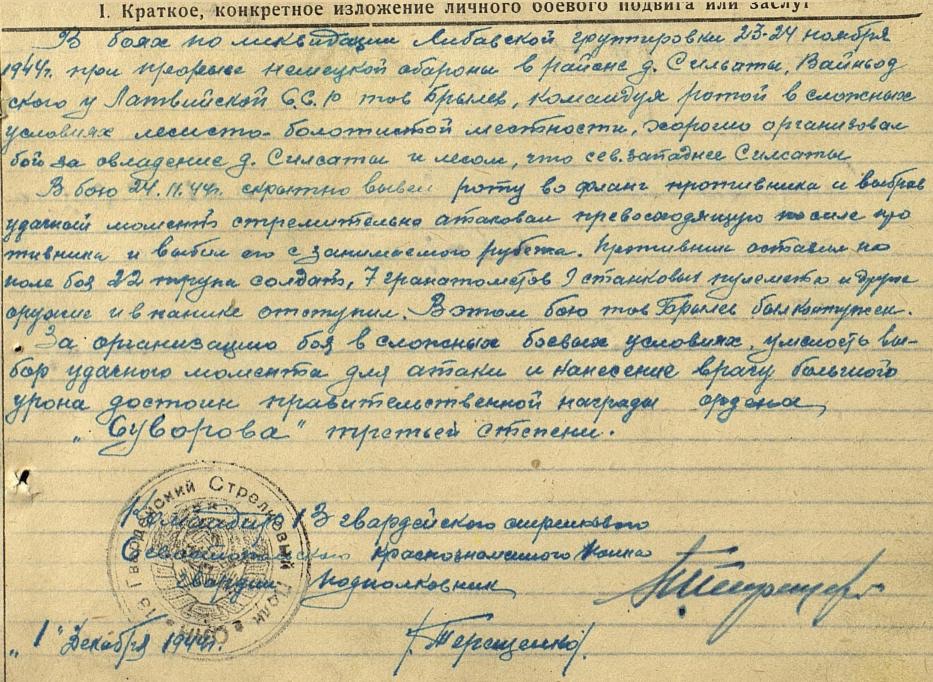 I. Краткое, конкретное изложение личного боевого подвига или заслуг
В боях по ликвидации Либавской группировки 23-24 ноября
1944г. при прорыве немецкой обороны в районе д. Силсаты, Вайньод
ского у Латвийской С.С.Р тов Брылев, командуя ротой в сложных
условиях лесисто-болотистой местности, хорошо организовал
бой за овладение д. Силсаты и лесом, что сев. западнее Силсаты
В бою 24.11.44г. скрытно вывел роту во фланг противника и выбрав
удачный момент стремительно атаковал превосходящую по силе про
тивника и выбил его с занимаемого рубежа. Противник оставил на
поле боя 22 трупа солдат, 7 гранатометов 9 станковых пулемета и друге
оружие и в панике отступил. В этом бою тов Брылев был контужен.
За организацию боя в сложных боевых условиях, умелость вы-
бор удачного момента для атаки и нанесение врагу большого
урона достоин правительственной награды ордена
„Суворова" третьей степени.
Командир 13 гвардейского стрелкового
Севастопольского краснознаменного полка
гвардии подполковник
/Терещенко/
„1" декабря 1944г.
13 Гвардейский Стрелковый Полк